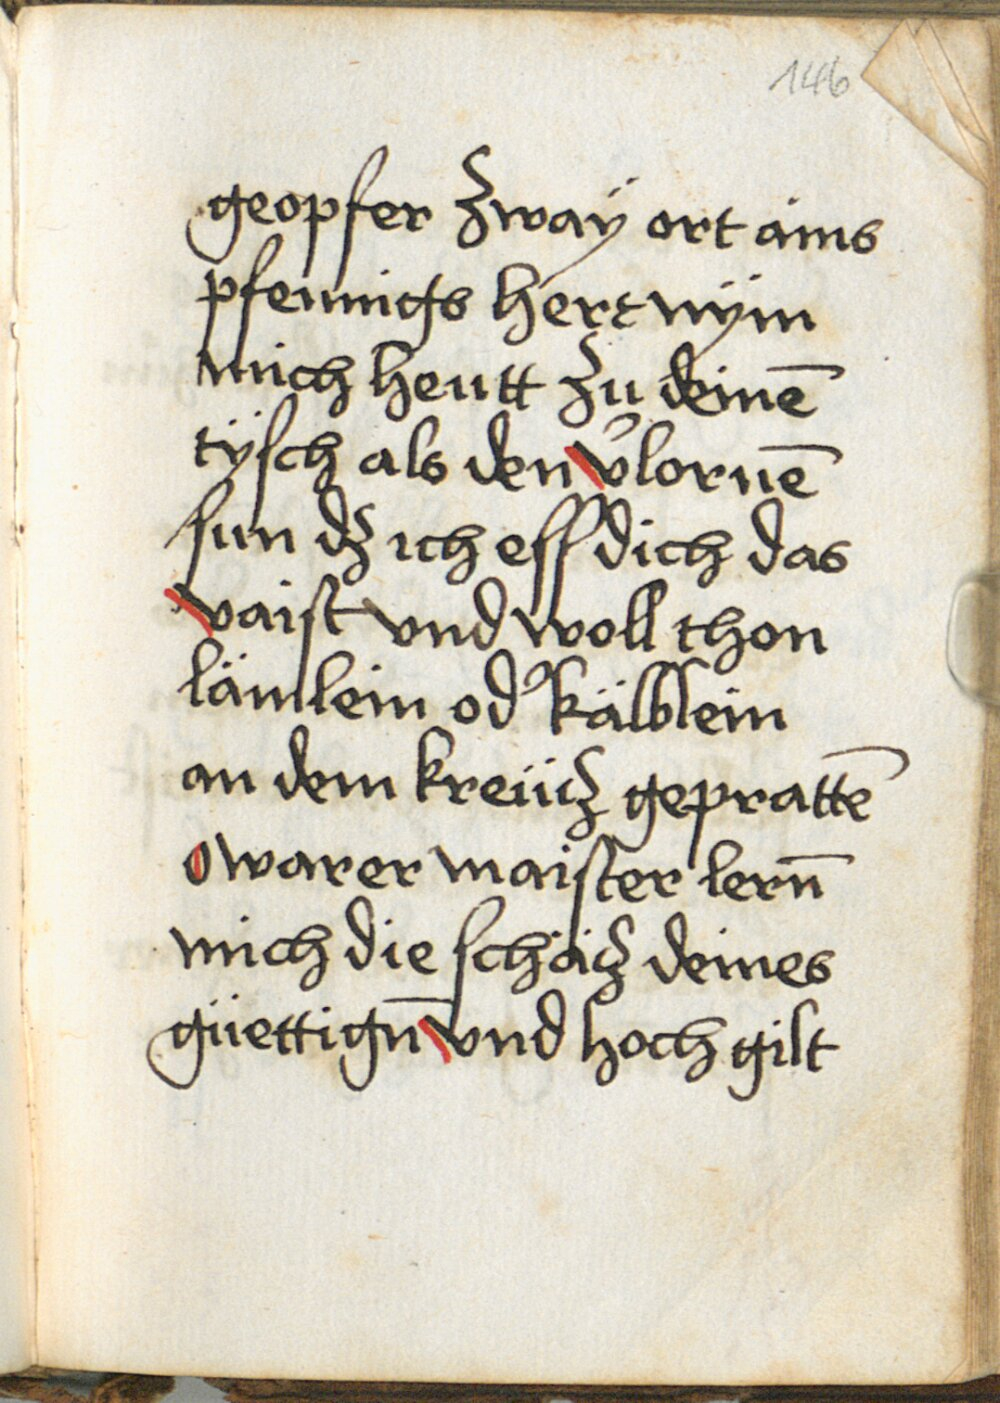 146
geopfer zwaÿ ort ains
pfennigs herr nÿm
mich heutt zu deinē
tÿsch als den v̉lornē
sun dʒ ich eſſ dich das
vaist vnd woll thon
lämlein od̉ kälblein
an dem kreücz geprattē
o warer maister lern̄
mich die schäcz deines
güettign̄ vnd hoch gilt